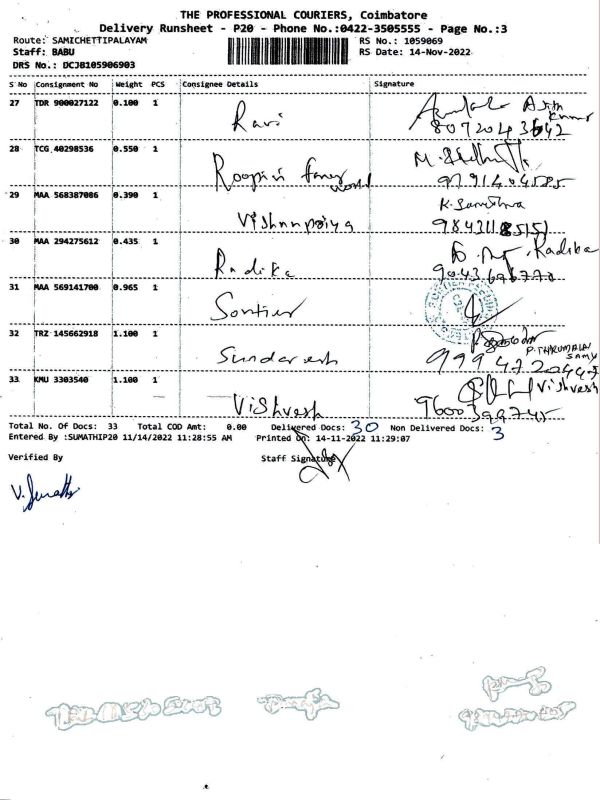 THE PROFESSIONAL COURIERS, Coimbatore
Delivery Runsheet - P20 - Phone No.:0422-3505555 - Page No.:3
Route: SAMICHETTIPALAYAM RS No.: 1059069
Staff: BABU RS Date: 14-Nov-2022
DRS No.: DCJB105906903
S No Consignment No Weight PCS Consignee Details Signature
27 TDR 900027122 0.100 1 Ravi Ajith Kumar
8072043642
28 TCG 40298536 0.550 1 Roopini fancy world
9791404585
29 MAA 568387086 0.390 1 Vishnupriya
9843118515
30 MAA 294275612 0.435 1 Radika Radika
31 MAA 569141700 0.965 1
32 TRZ 145662918 1.100 1 Sundaresh P. THIRUMALAI SAMY
33 KMU 3303540 1.100 1 Vishvesh Vishvesh
9600399745
Total No. Of Docs: 33 Total COD Amt: 0.00 Delivered Docs: 30 Non Delivered Docs: 3
Entered By :SUMATHIP20 11/14/2022 11:28:55 AM Printed On: 14-11-2022 11:29:07
Verified By Staff Signature